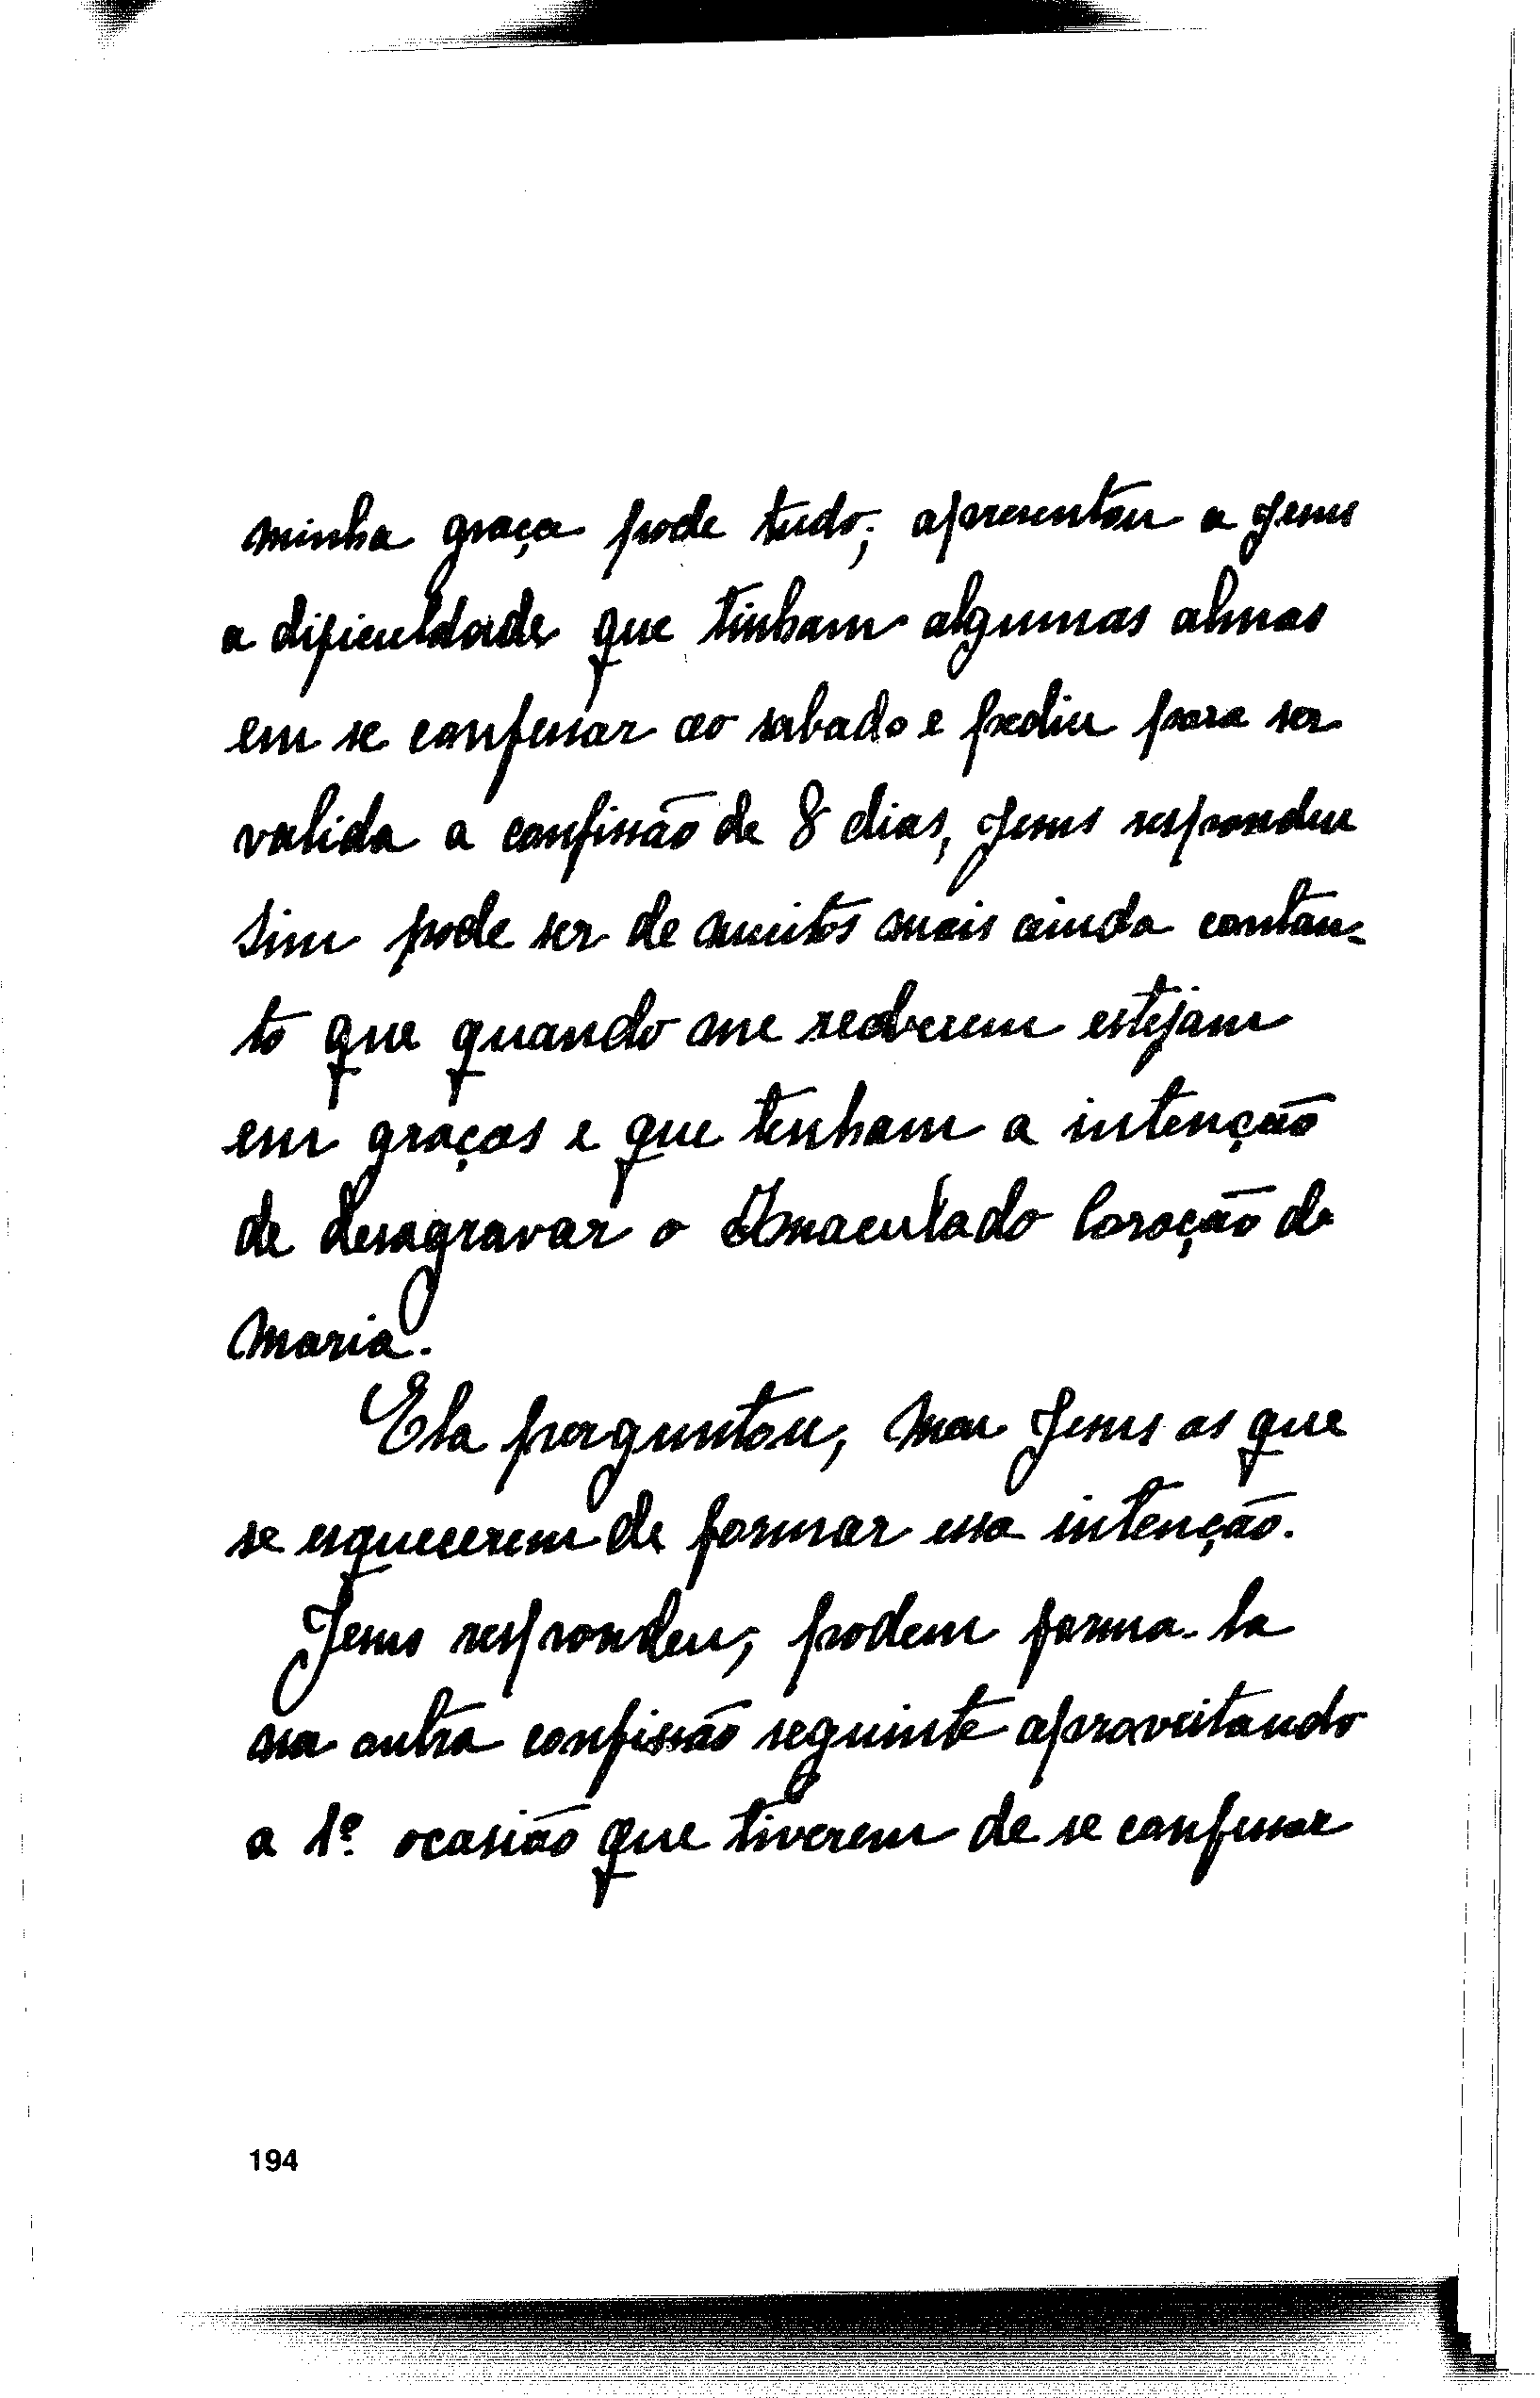 minha graça pode tudo; apresentou a Jesus
a dificuldade que tinham algumas almas
em se confessar ao sabado e pediu para ser
valida a confissão de 8 dias, Jesus respondeu
sim pode ser de muitos mais ainda contan-
to que quando me receberem estejam
em graças e que tenham a intenção
de desagravar o Imaculado Coração de
Maria.
Ela perguntou, Meu Jesus as que
se esquecerem de formar essa intenção.
Jesus respondeu; podem forma-la
na outra confissão seguinte aproveitando
a 1ª ocasião que tiverem de se confessar
194